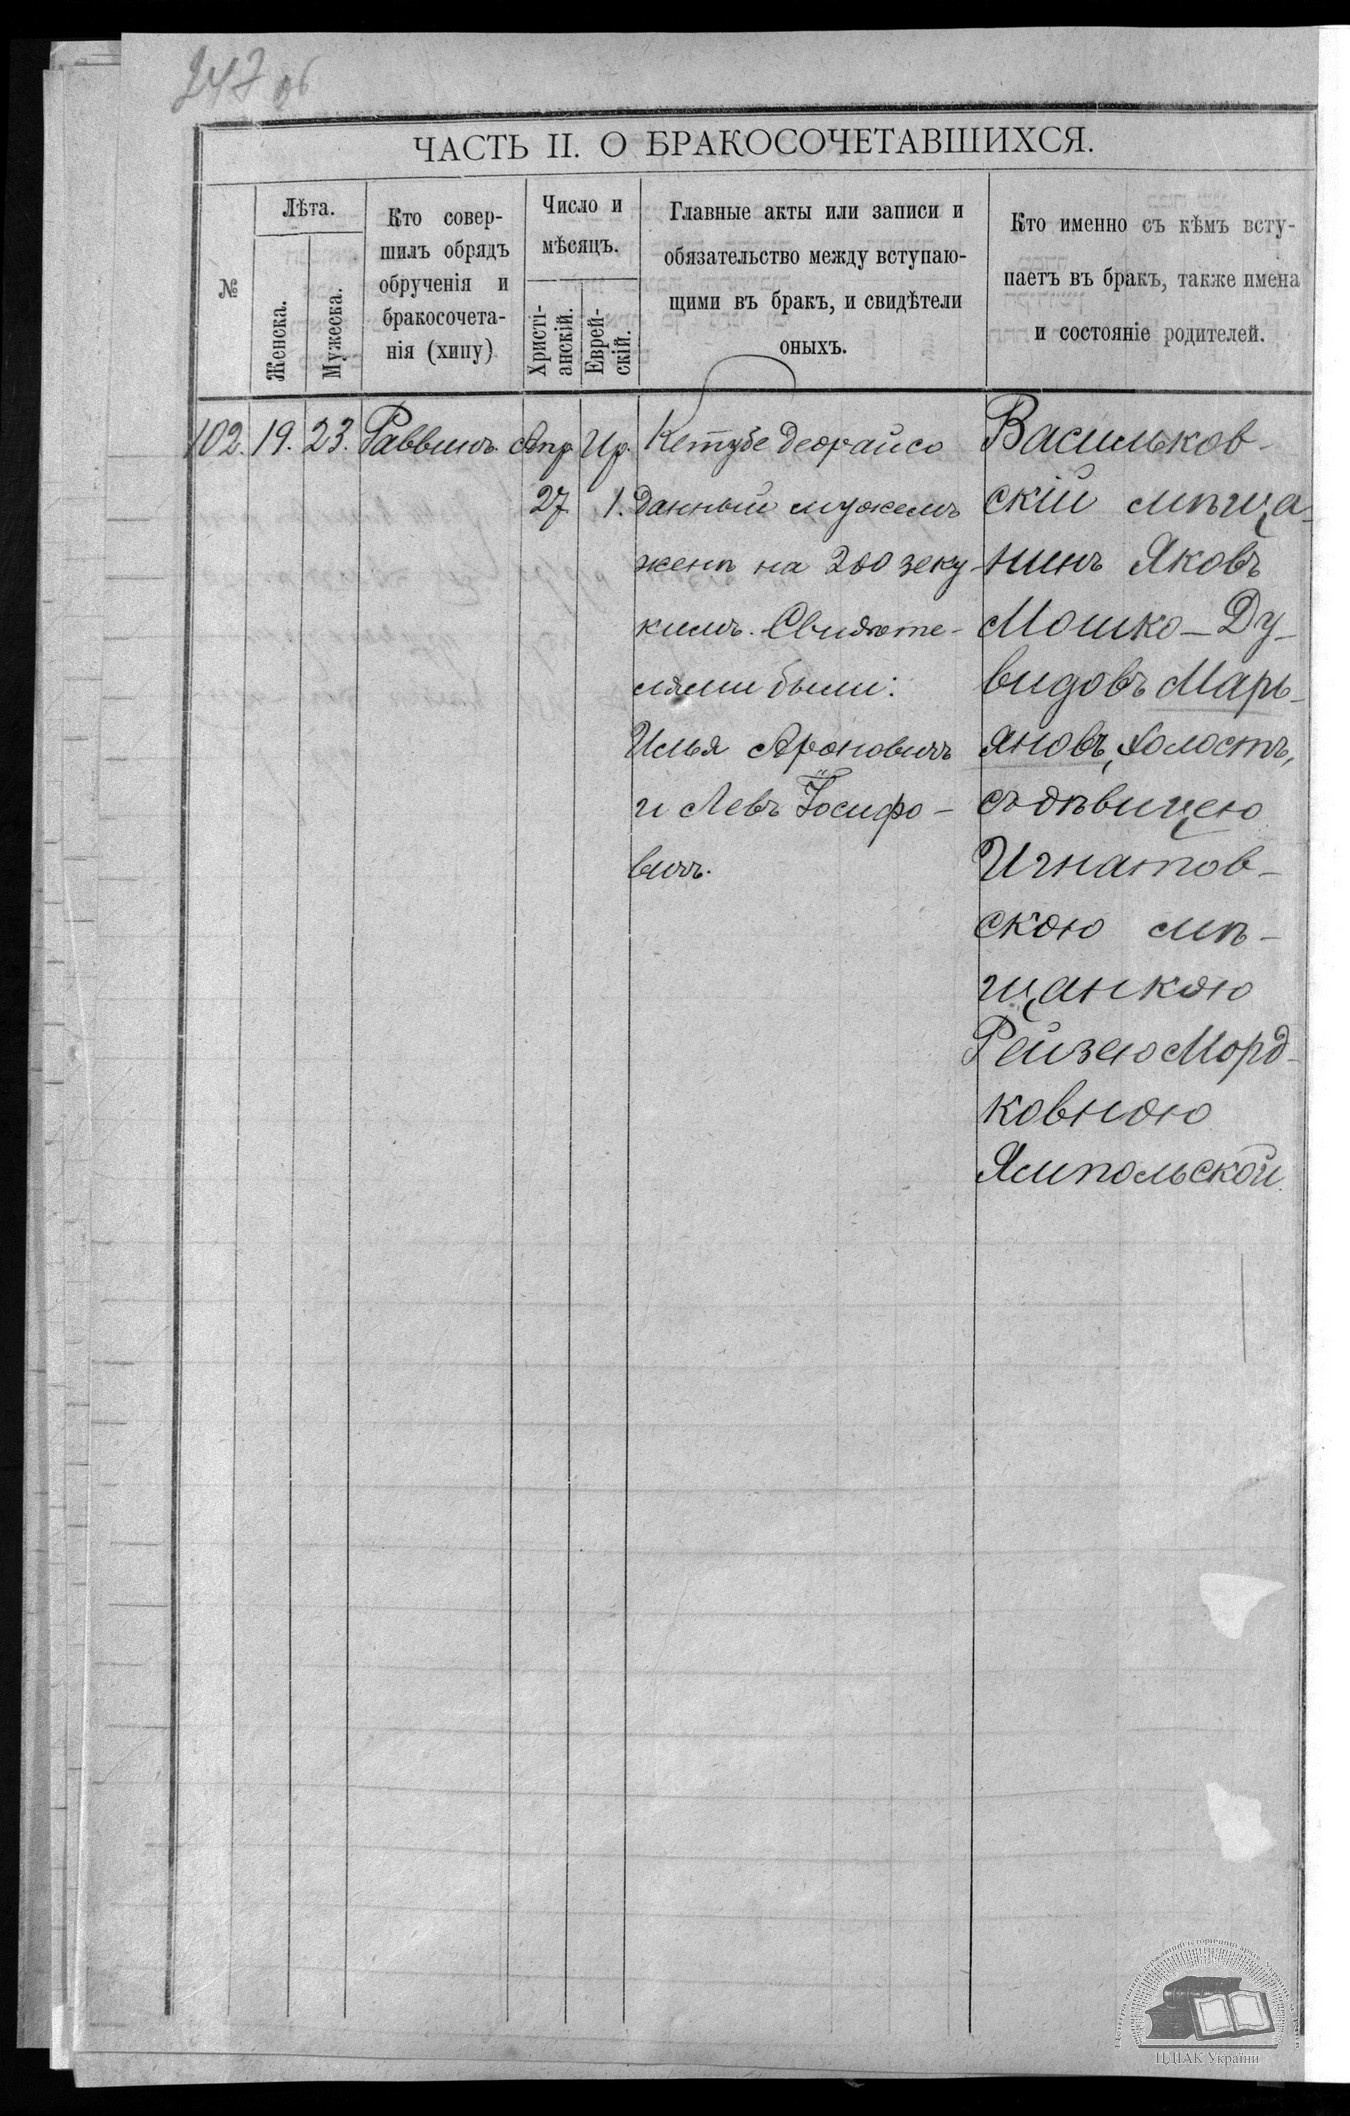 247 об
ЧАСТЬ II. О БРАКОСОЧЕТАВШИХСЯ.
№
Лѣта.
Женска.
Мужеска.
Кто совер-
шилъ обрядъ
обрученія и
бракосочета-
нія (хипу)
Число и
мѣсяцъ.
Христі-
анскій.
Еврей-
скій.
Главные акты или записи и
обязательство между вступаю-
щими въ бракъ, и свидѣтели
оныхъ.
Кто именно съ кѣмъ всту-
паетъ въ бракъ, также имена
и состояніе родителей.
102. 19. 23. Раввинъ. Апр. Ир.
27 1.
Кетубе деорайсо
данный мужемъ
женѣ на 200 зеку-
кимъ. Свидѣте-
лями были:
Илья Ароновичъ
и Левъ Іосифо-
вичъ.
Васильков-
скій мѣща-
нинъ Яковъ
Мошко-Ду-
видовъ Марь-
яновъ, холостъ,
съ дѣвицею
Игнатов-
скою мѣ-
щанкою
Рейзею Морд-
ковною
Ямпольской.
ЦДІАК України